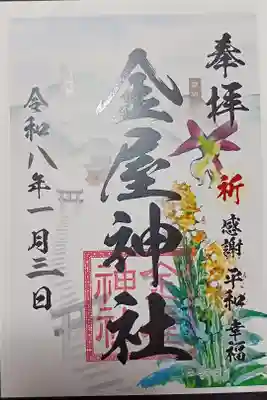 奉拝
祈
感謝 平和 幸福
金屋神社
令和八年一月三日